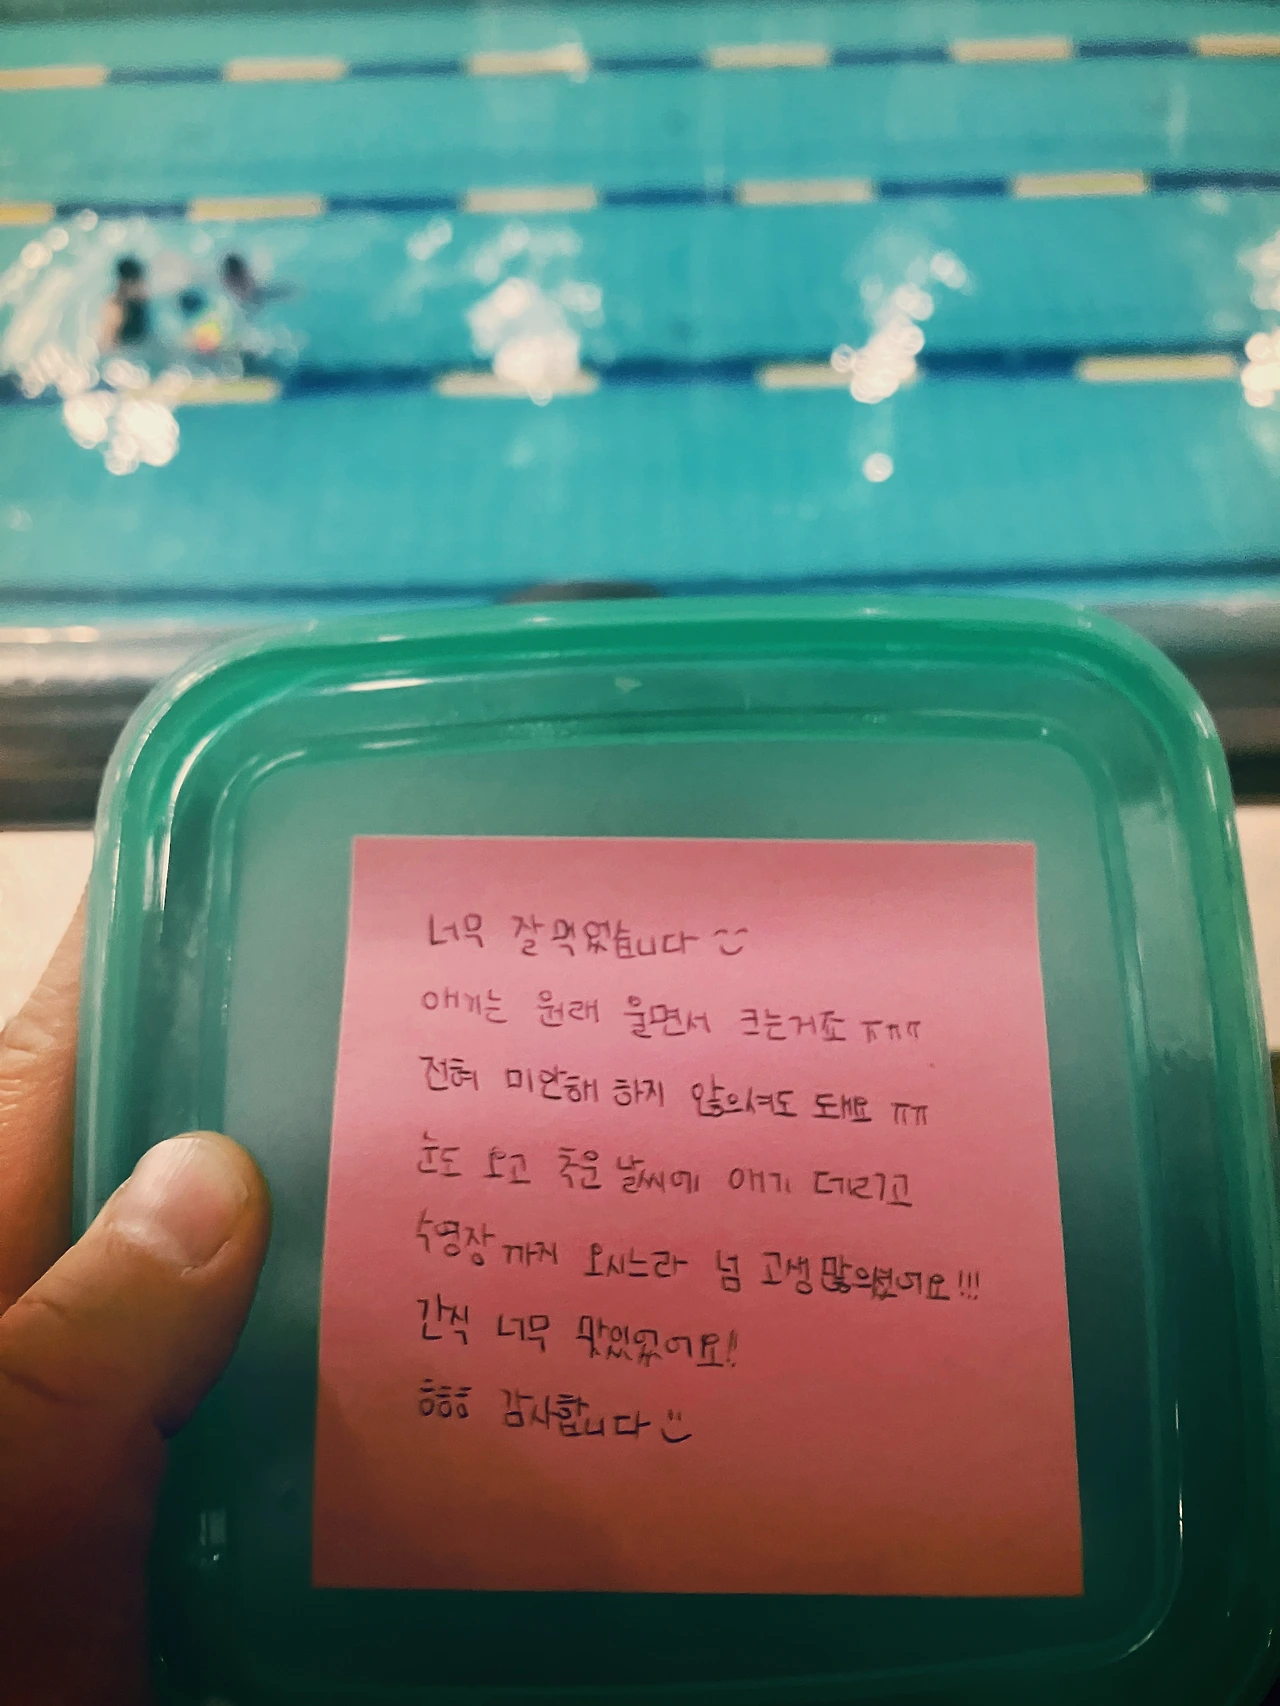 너무 잘 먹었습니다 :)
애기는 원래 울면서 크는거죠 ㅠㅠㅠ
전혀 미안해 하지 않으셔도 돼요 ㅠㅠ
눈도 오고 추운 날씨에 애기 데리고
수영장까지 오시느라 넘 고생 많으셨어요!!!
간식 너무 맛있었어요!
ㅎㅎㅎ 감사합니다 :)